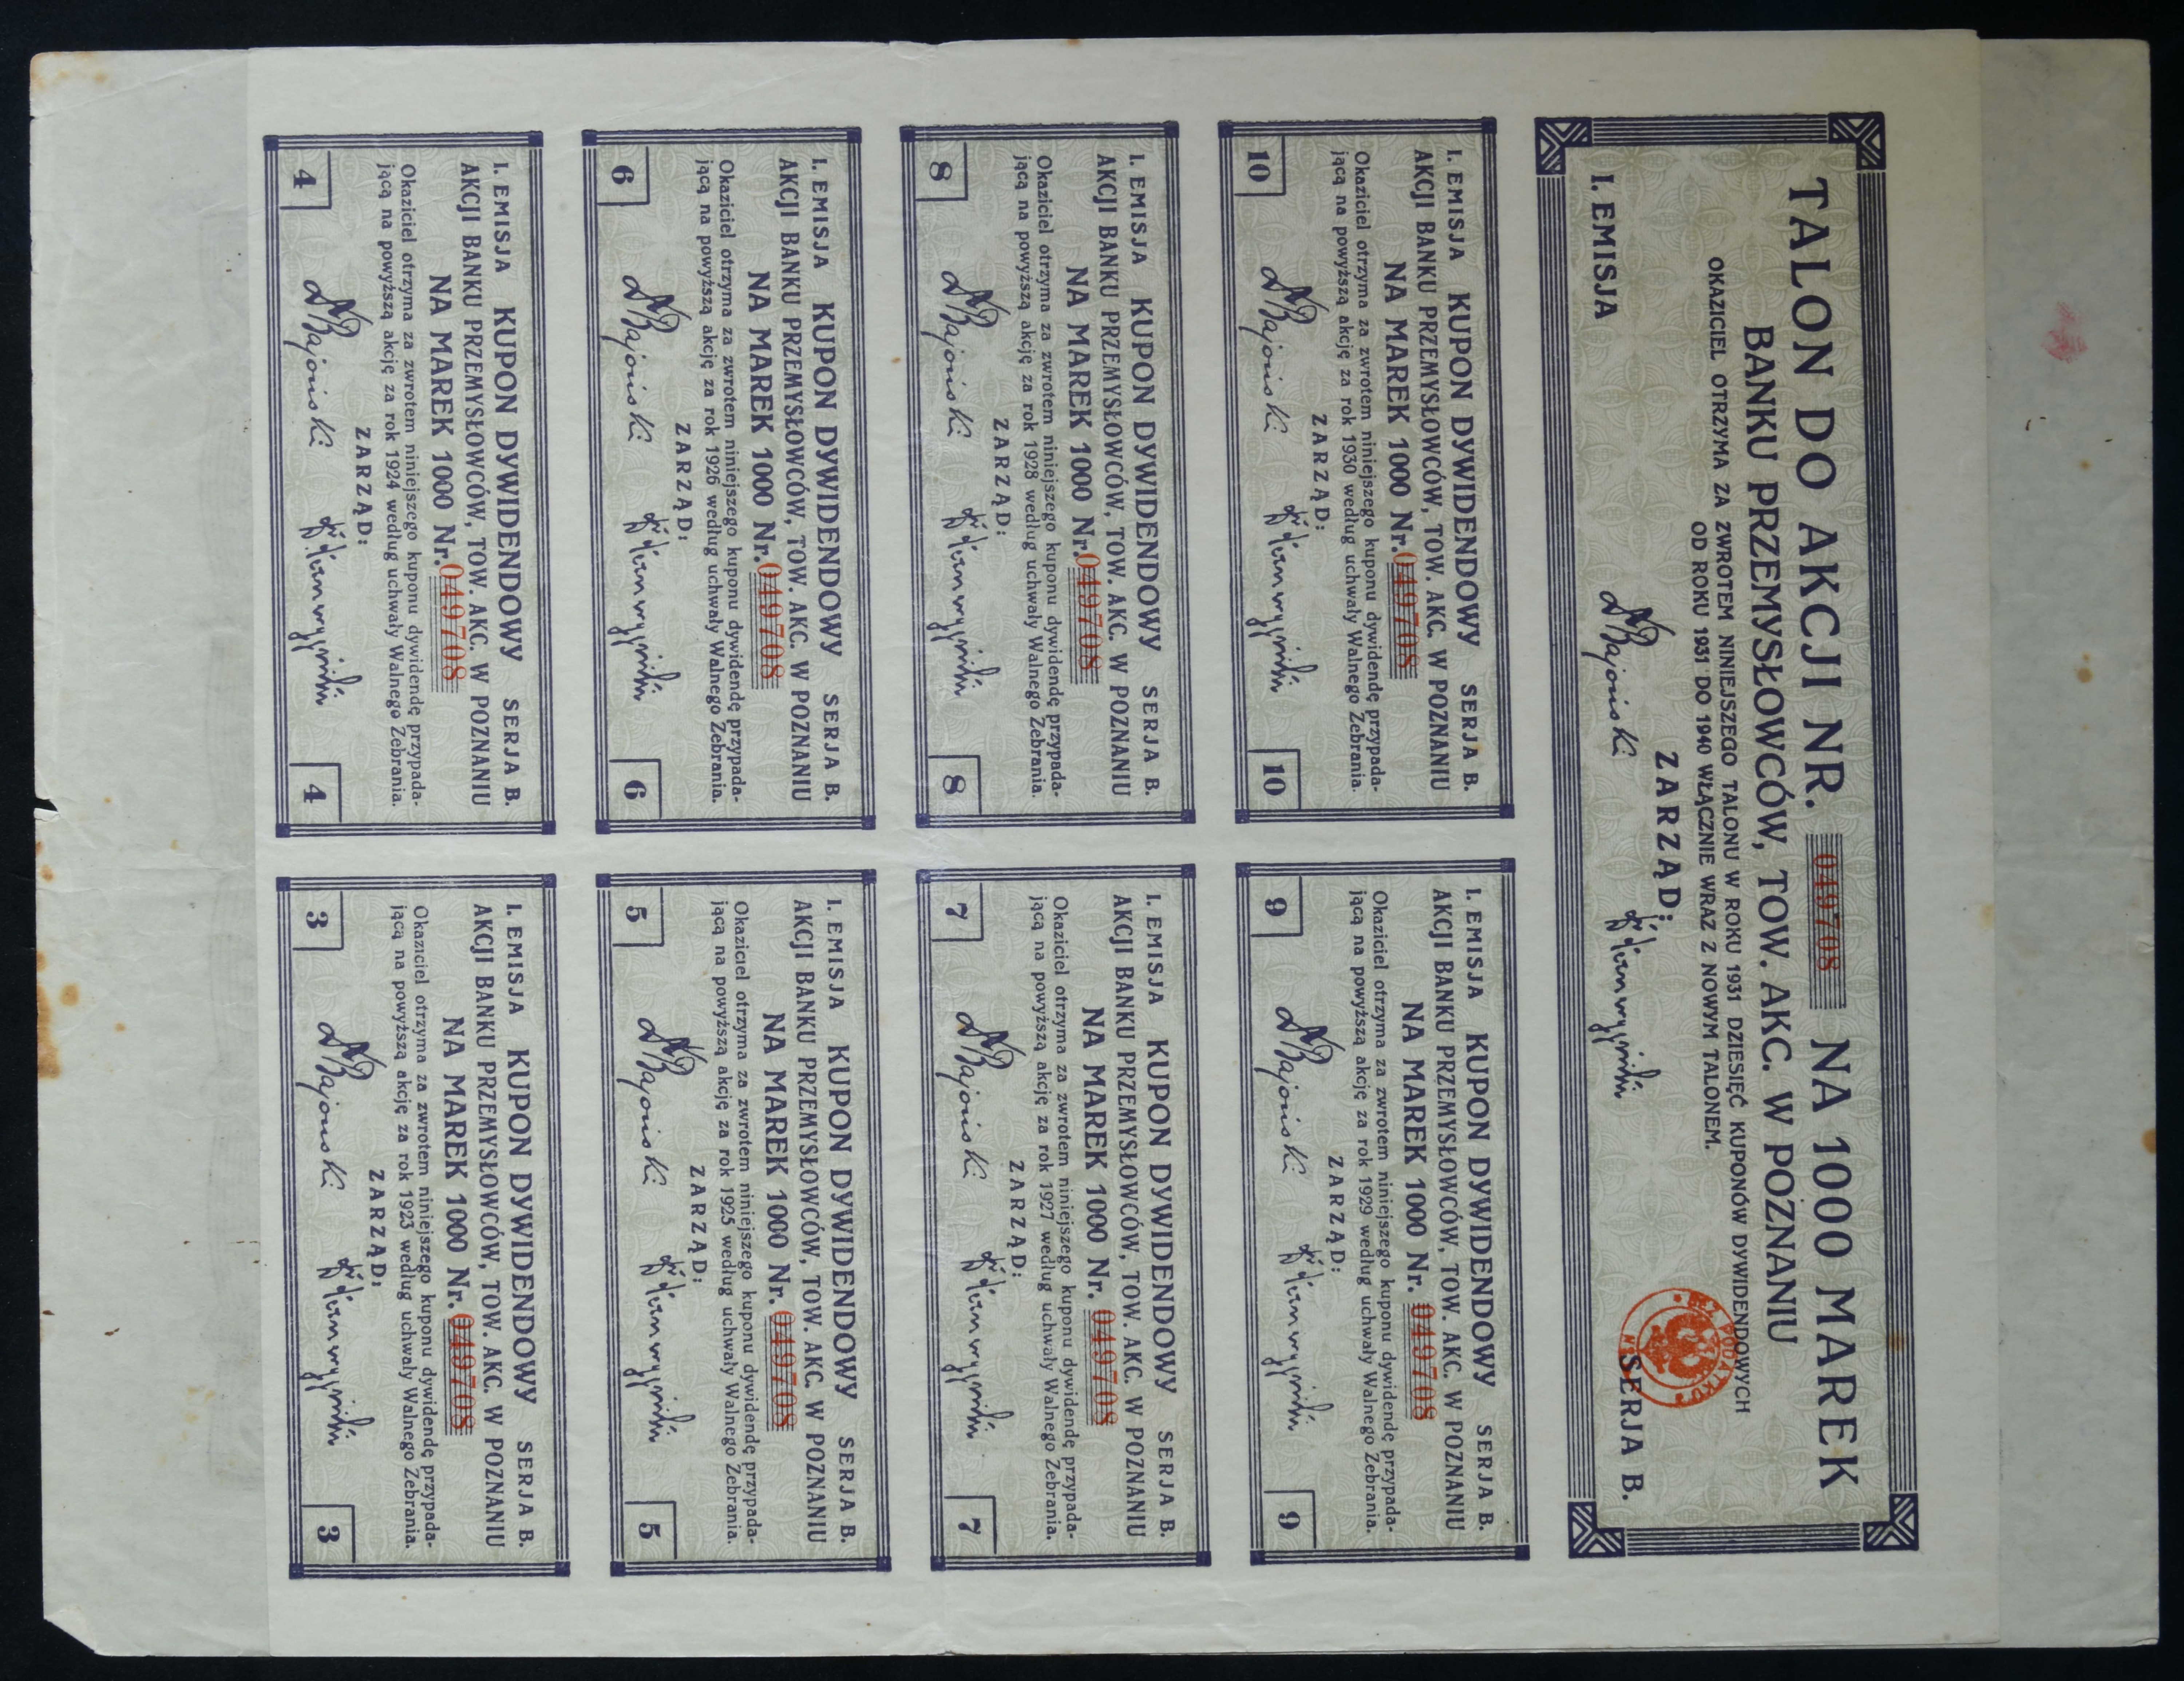 TALON DO AKCJI NR. 049708 NA 1000 MAREK
BANKU PRZEMYSŁOWCÓW, TOW. AKC. W POZNANIU
OKAZICIEL OTRZYMA ZA ZWROTEM NINIEJSZEGO TALONU W ROKU 1931 DZIESIĘĆ KUPONÓW DYWIDENDOWYCH
OD ROKU 1931 DO 1940 WŁĄCZNIE WRAZ Z NOWYM TALONEM.
ZARZĄD:
I. EMISJA SERJA B.
I. EMISJA KUPON DYWIDENDOWY SERJA B.
AKCJI BANKU PRZEMYSŁOWCÓW, TOW. AKC. W POZNANIU
NA MAREK 1000 Nr. 049708
Okaziciel otrzyma za zwrotem niniejszego kuponu dywidendę przypada-
jącą na powyższą akcję za rok 1930 według uchwały Walnego Zebrania.
ZARZĄD:
10 10
I. EMISJA KUPON DYWIDENDOWY SERJA B.
AKCJI BANKU PRZEMYSŁOWCÓW, TOW. AKC. W POZNANIU
NA MAREK 1000 Nr. 049708
Okaziciel otrzyma za zwrotem niniejszego kuponu dywidendę przypada-
jącą na powyższą akcję za rok 1929 według uchwały Walnego Zebrania.
ZARZĄD:
9 9
I. EMISJA KUPON DYWIDENDOWY SERJA B.
AKCJI BANKU PRZEMYSŁOWCÓW, TOW. AKC. W POZNANIU
NA MAREK 1000 Nr. 049708
Okaziciel otrzyma za zwrotem niniejszego kuponu dywidendę przypada-
jącą na powyższą akcję za rok 1928 według uchwały Walnego Zebrania.
ZARZĄD:
8 8
I. EMISJA KUPON DYWIDENDOWY SERJA B.
AKCJI BANKU PRZEMYSŁOWCÓW, TOW. AKC. W POZNANIU
NA MAREK 1000 Nr. 049708
Okaziciel otrzyma za zwrotem niniejszego kuponu dywidendę przypada-
jącą na powyższą akcję za rok 1927 według uchwały Walnego Zebrania.
ZARZĄD:
7 7
I. EMISJA KUPON DYWIDENDOWY SERJA B.
AKCJI BANKU PRZEMYSŁOWCÓW, TOW. AKC. W POZNANIU
NA MAREK 1000 Nr. 049708
Okaziciel otrzyma za zwrotem niniejszego kuponu dywidendę przypada-
jącą na powyższą akcję za rok 1926 według uchwały Walnego Zebrania.
ZARZĄD:
6 6
I. EMISJA KUPON DYWIDENDOWY SERJA B.
AKCJI BANKU PRZEMYSŁOWCÓW, TOW. AKC. W POZNANIU
NA MAREK 1000 Nr. 049708
Okaziciel otrzyma za zwrotem niniejszego kuponu dywidendę przypada-
jącą na powyższą akcję za rok 1925 według uchwały Walnego Zebrania.
ZARZĄD:
5 5
I. EMISJA KUPON DYWIDENDOWY SERJA B.
AKCJI BANKU PRZEMYSŁOWCÓW, TOW. AKC. W POZNANIU
NA MAREK 1000 Nr. 049708
Okaziciel otrzyma za zwrotem niniejszego kuponu dywidendę przypada-
jącą na powyższą akcję za rok 1924 według uchwały Walnego Zebrania.
ZARZĄD:
4 4
I. EMISJA KUPON DYWIDENDOWY SERJA B.
AKCJI BANKU PRZEMYSŁOWCÓW, TOW. AKC. W POZNANIU
NA MAREK 1000 Nr. 049708
Okaziciel otrzyma za zwrotem niniejszego kuponu dywidendę przypada-
jącą na powyższą akcję za rok 1923 według uchwały Walnego Zebrania.
ZARZĄD:
3 3